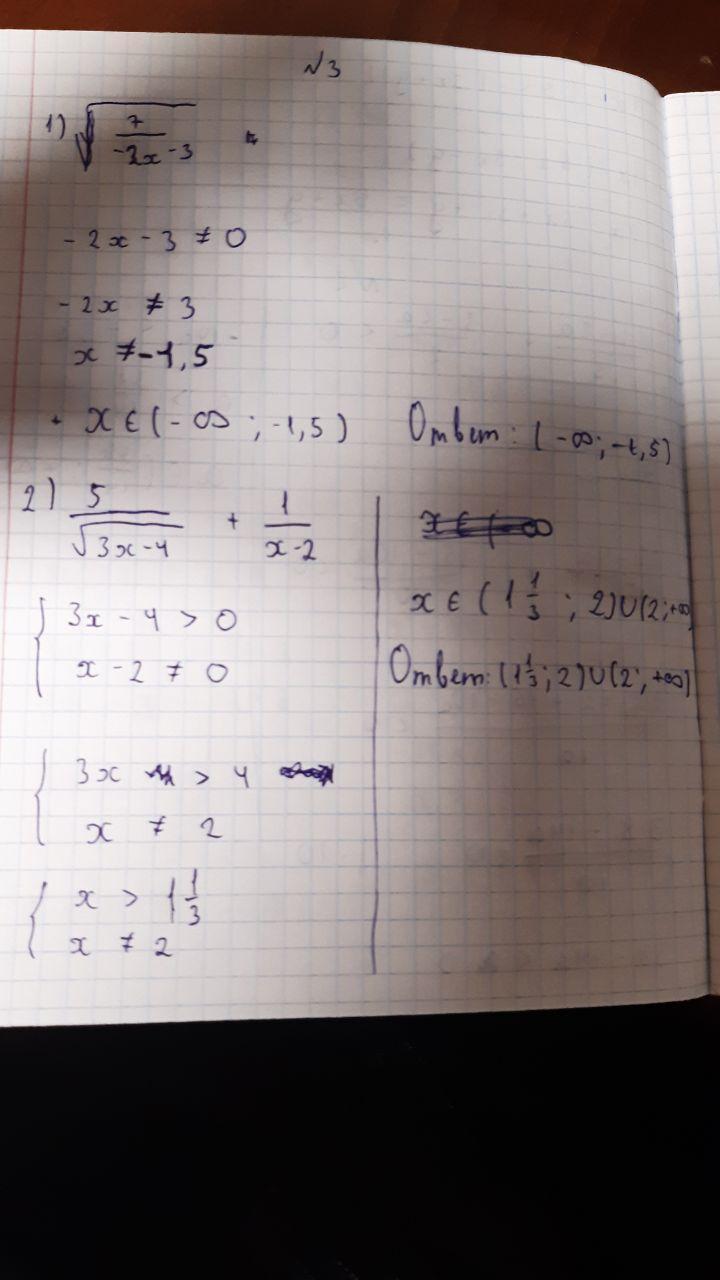 N3
1) √(7/(-2x-3))
-2x-3 ≠ 0
-2x ≠ 3
x ≠ -1,5
x ∈ (-∞ ; -1,5)
Ответ: (-∞; -1,5)
2) 5/√(3x-4) + 1/(x-2)
{ 3x - 4 > 0
x - 2 ≠ 0
{ 3x > 4
x ≠ 2
{ x > 1 1/3
x ≠ 2
x ∈ (-∞
x ∈ (1 1/3 ; 2)∪(2;+∞)
Ответ: (1 1/3; 2)∪(2; +∞)